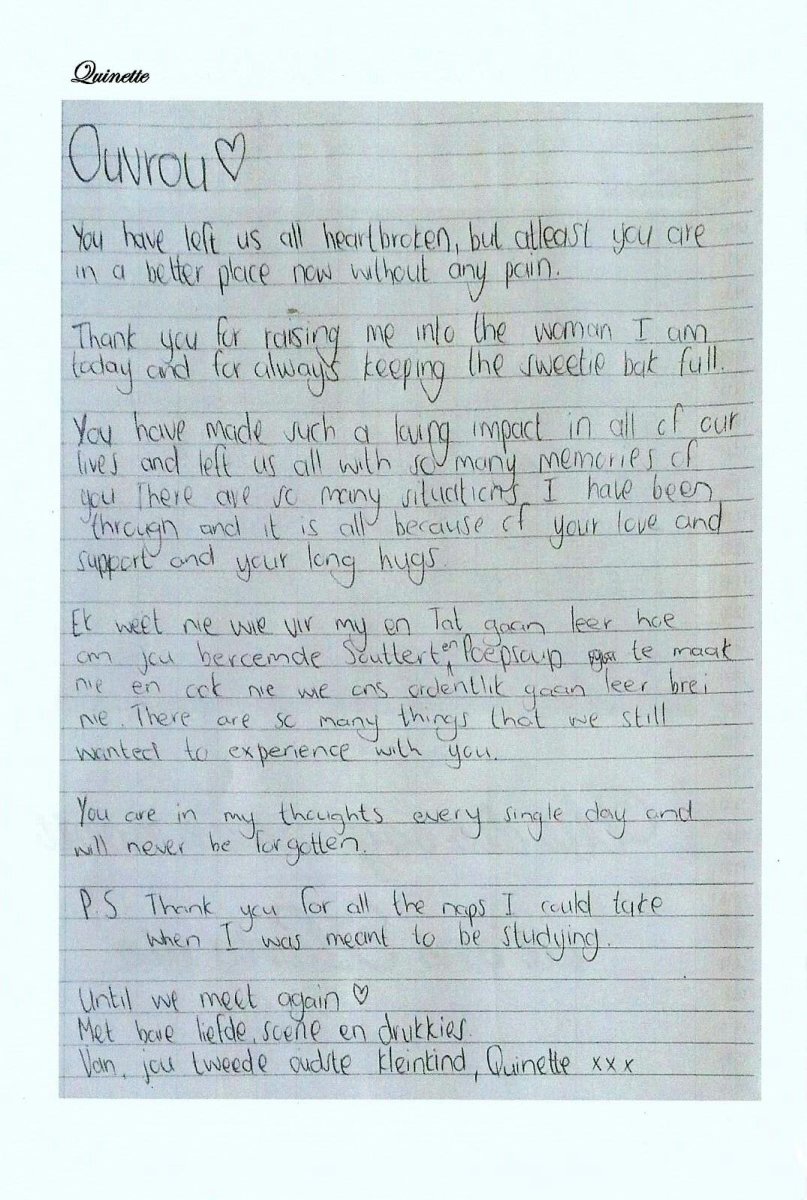 Quinette
Ouvrou♡
You have left us all heartbroken, but atleast you are
in a better place now without any pain.
Thank you for raising me into the woman I am
today and for always keeping the sweetie bak full.
You have made such a loving impact in all of our
lives and left us all with so many memories of
you There are so many situations I have been
through and it is all because of your love and
support and your long hugs.
Ek weet nie wie vir my en Tat gaan leer hoe
om jou beroemde Souttert en Poepsoup te maak
nie en ook nie wie ons ordentlik gaan leer brei
nie. There are so many things that we still
wanted to experience with you.
You are in my thoughts every single day and
will never be forgotten.
P.S Thank you for all the naps I could take
when I was meant to be studying.
Until we meet again ♡
Met bare liefde, soene en drukkies.
Van, jou tweede oudste kleinkind, Quinette xxx